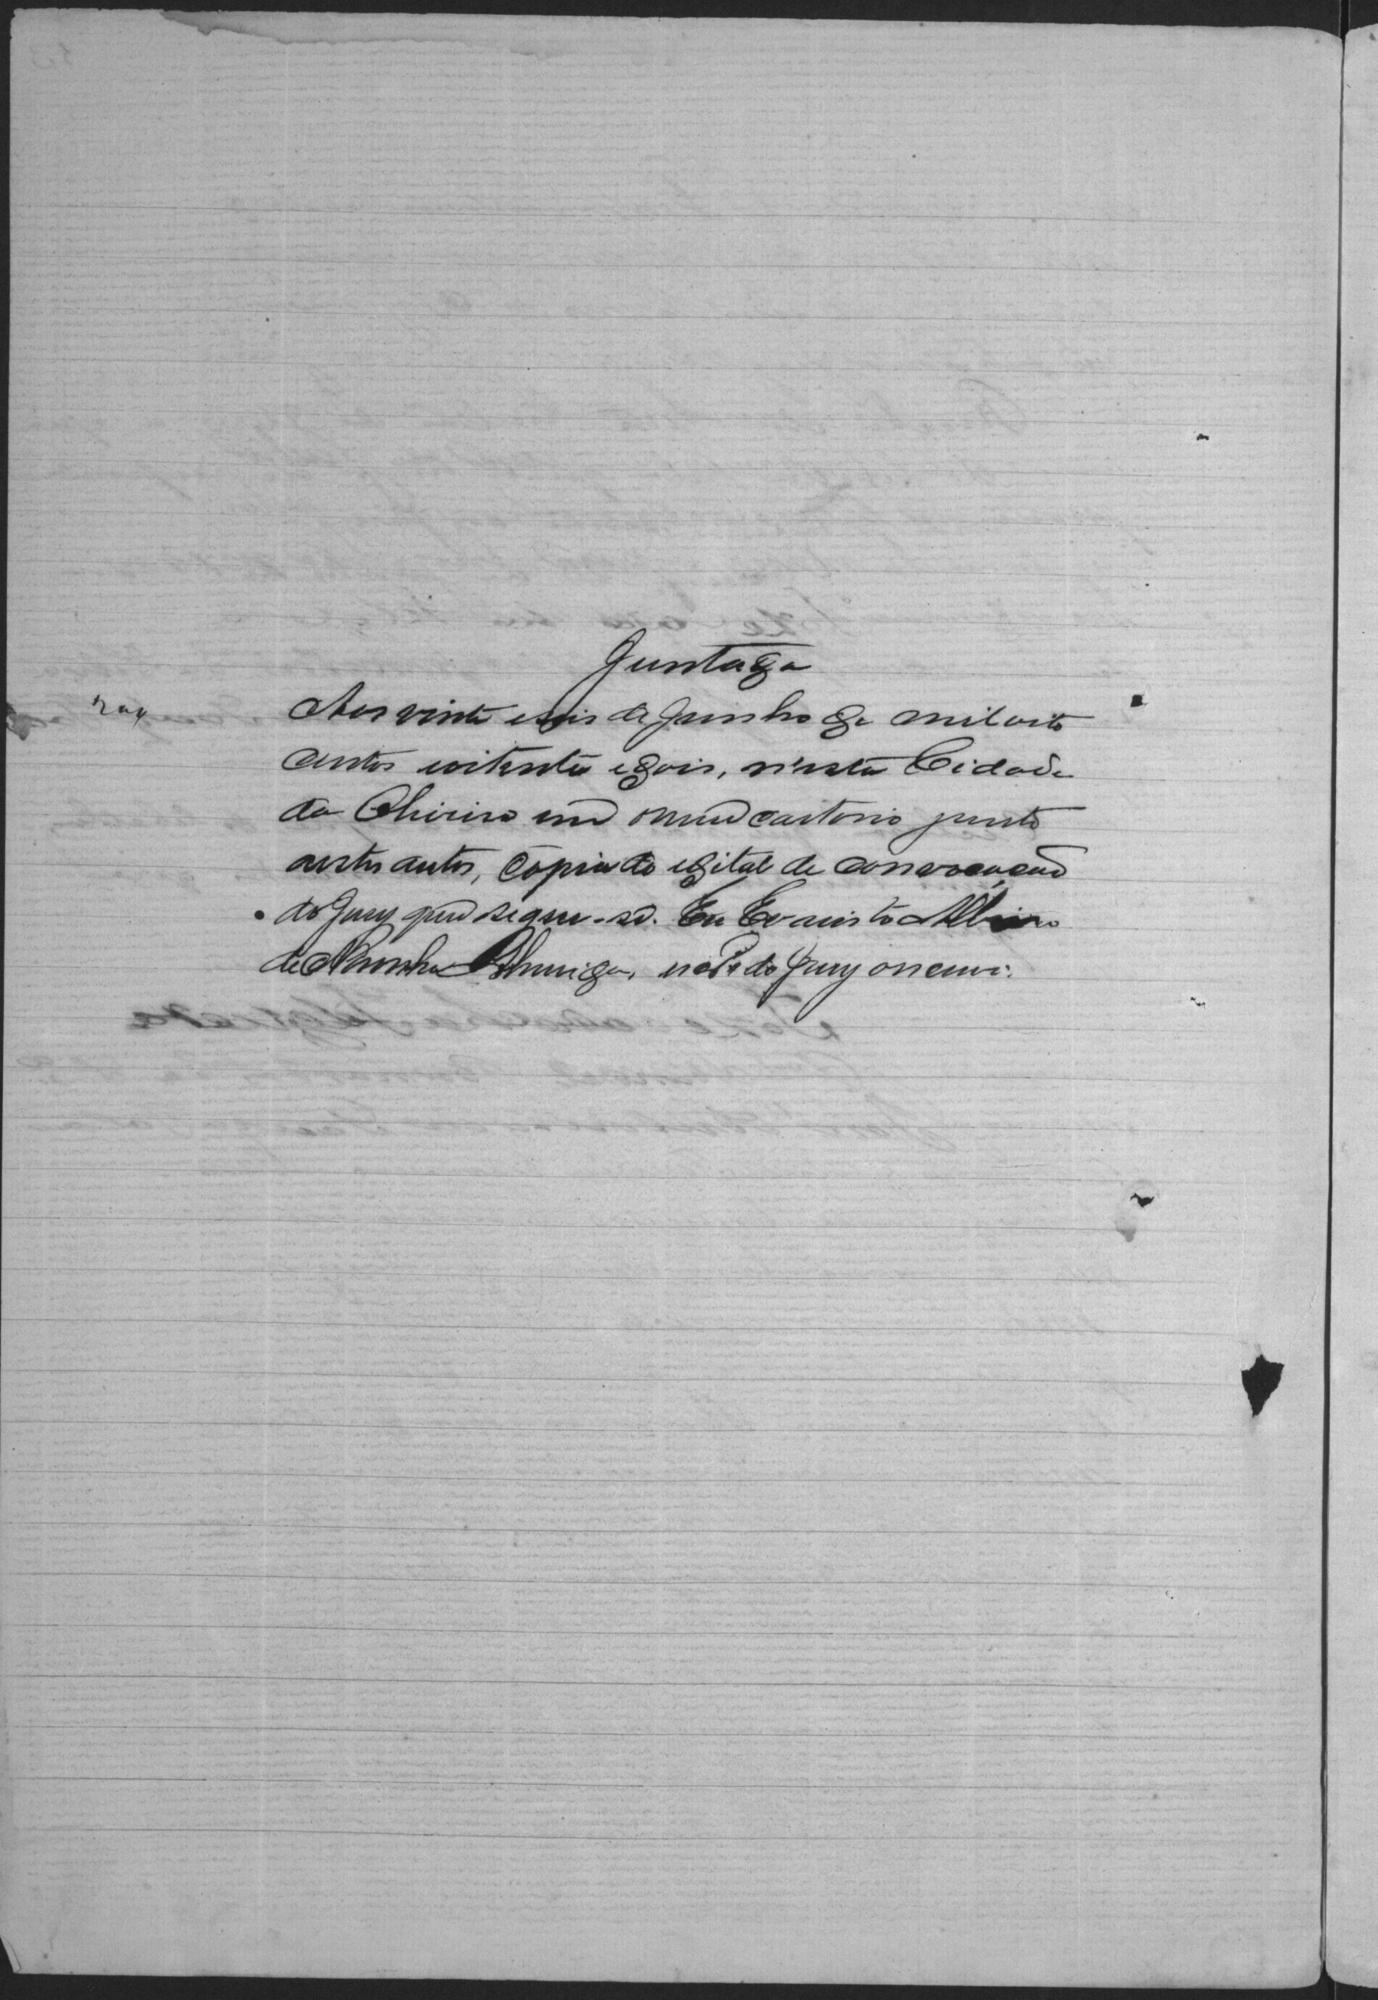 Juntada
Aos vinte e seis de Junho de mil oito
centos e oitenta e dois, n'esta Cidade
da em meu cartorio junto
a estes autos, copia do edital de convocação
do Jury que segue-se. Eu Evaristo Albino
de do Jury o escrevi.